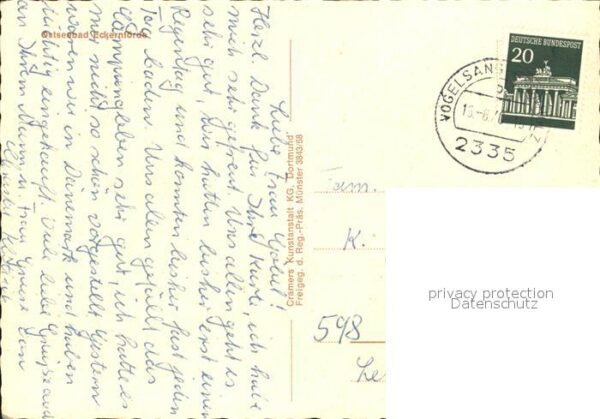 Ostseebad Eckernförde
Liebe Frau
Herzl. Dank für Ihre Karte, ich habe
mich sehr gefreut. Uns allen geht es
sehr gut, wir hatten bisher erst einen
Regentag und konnten bisher fast jeden
Tag baden. Uns allen gefällt das
Campingleben sehr gut, ich hatte es
mir nicht so schön vorgestellt. Gestern
waren wir in Dänemark und haben
tüchtig eingekauft. Viele liebe Grüße auch
an Ihren Mann u. Frau von
Cramers Kunstanstalt KG, Dortmund
Freigeg. d. Reg.-Präs. Münster 3843/58
DEUTSCHE BUNDESPOST
20
VOGELSANG
2335
Fam.
K.
598
privacy protection
Datenschutz